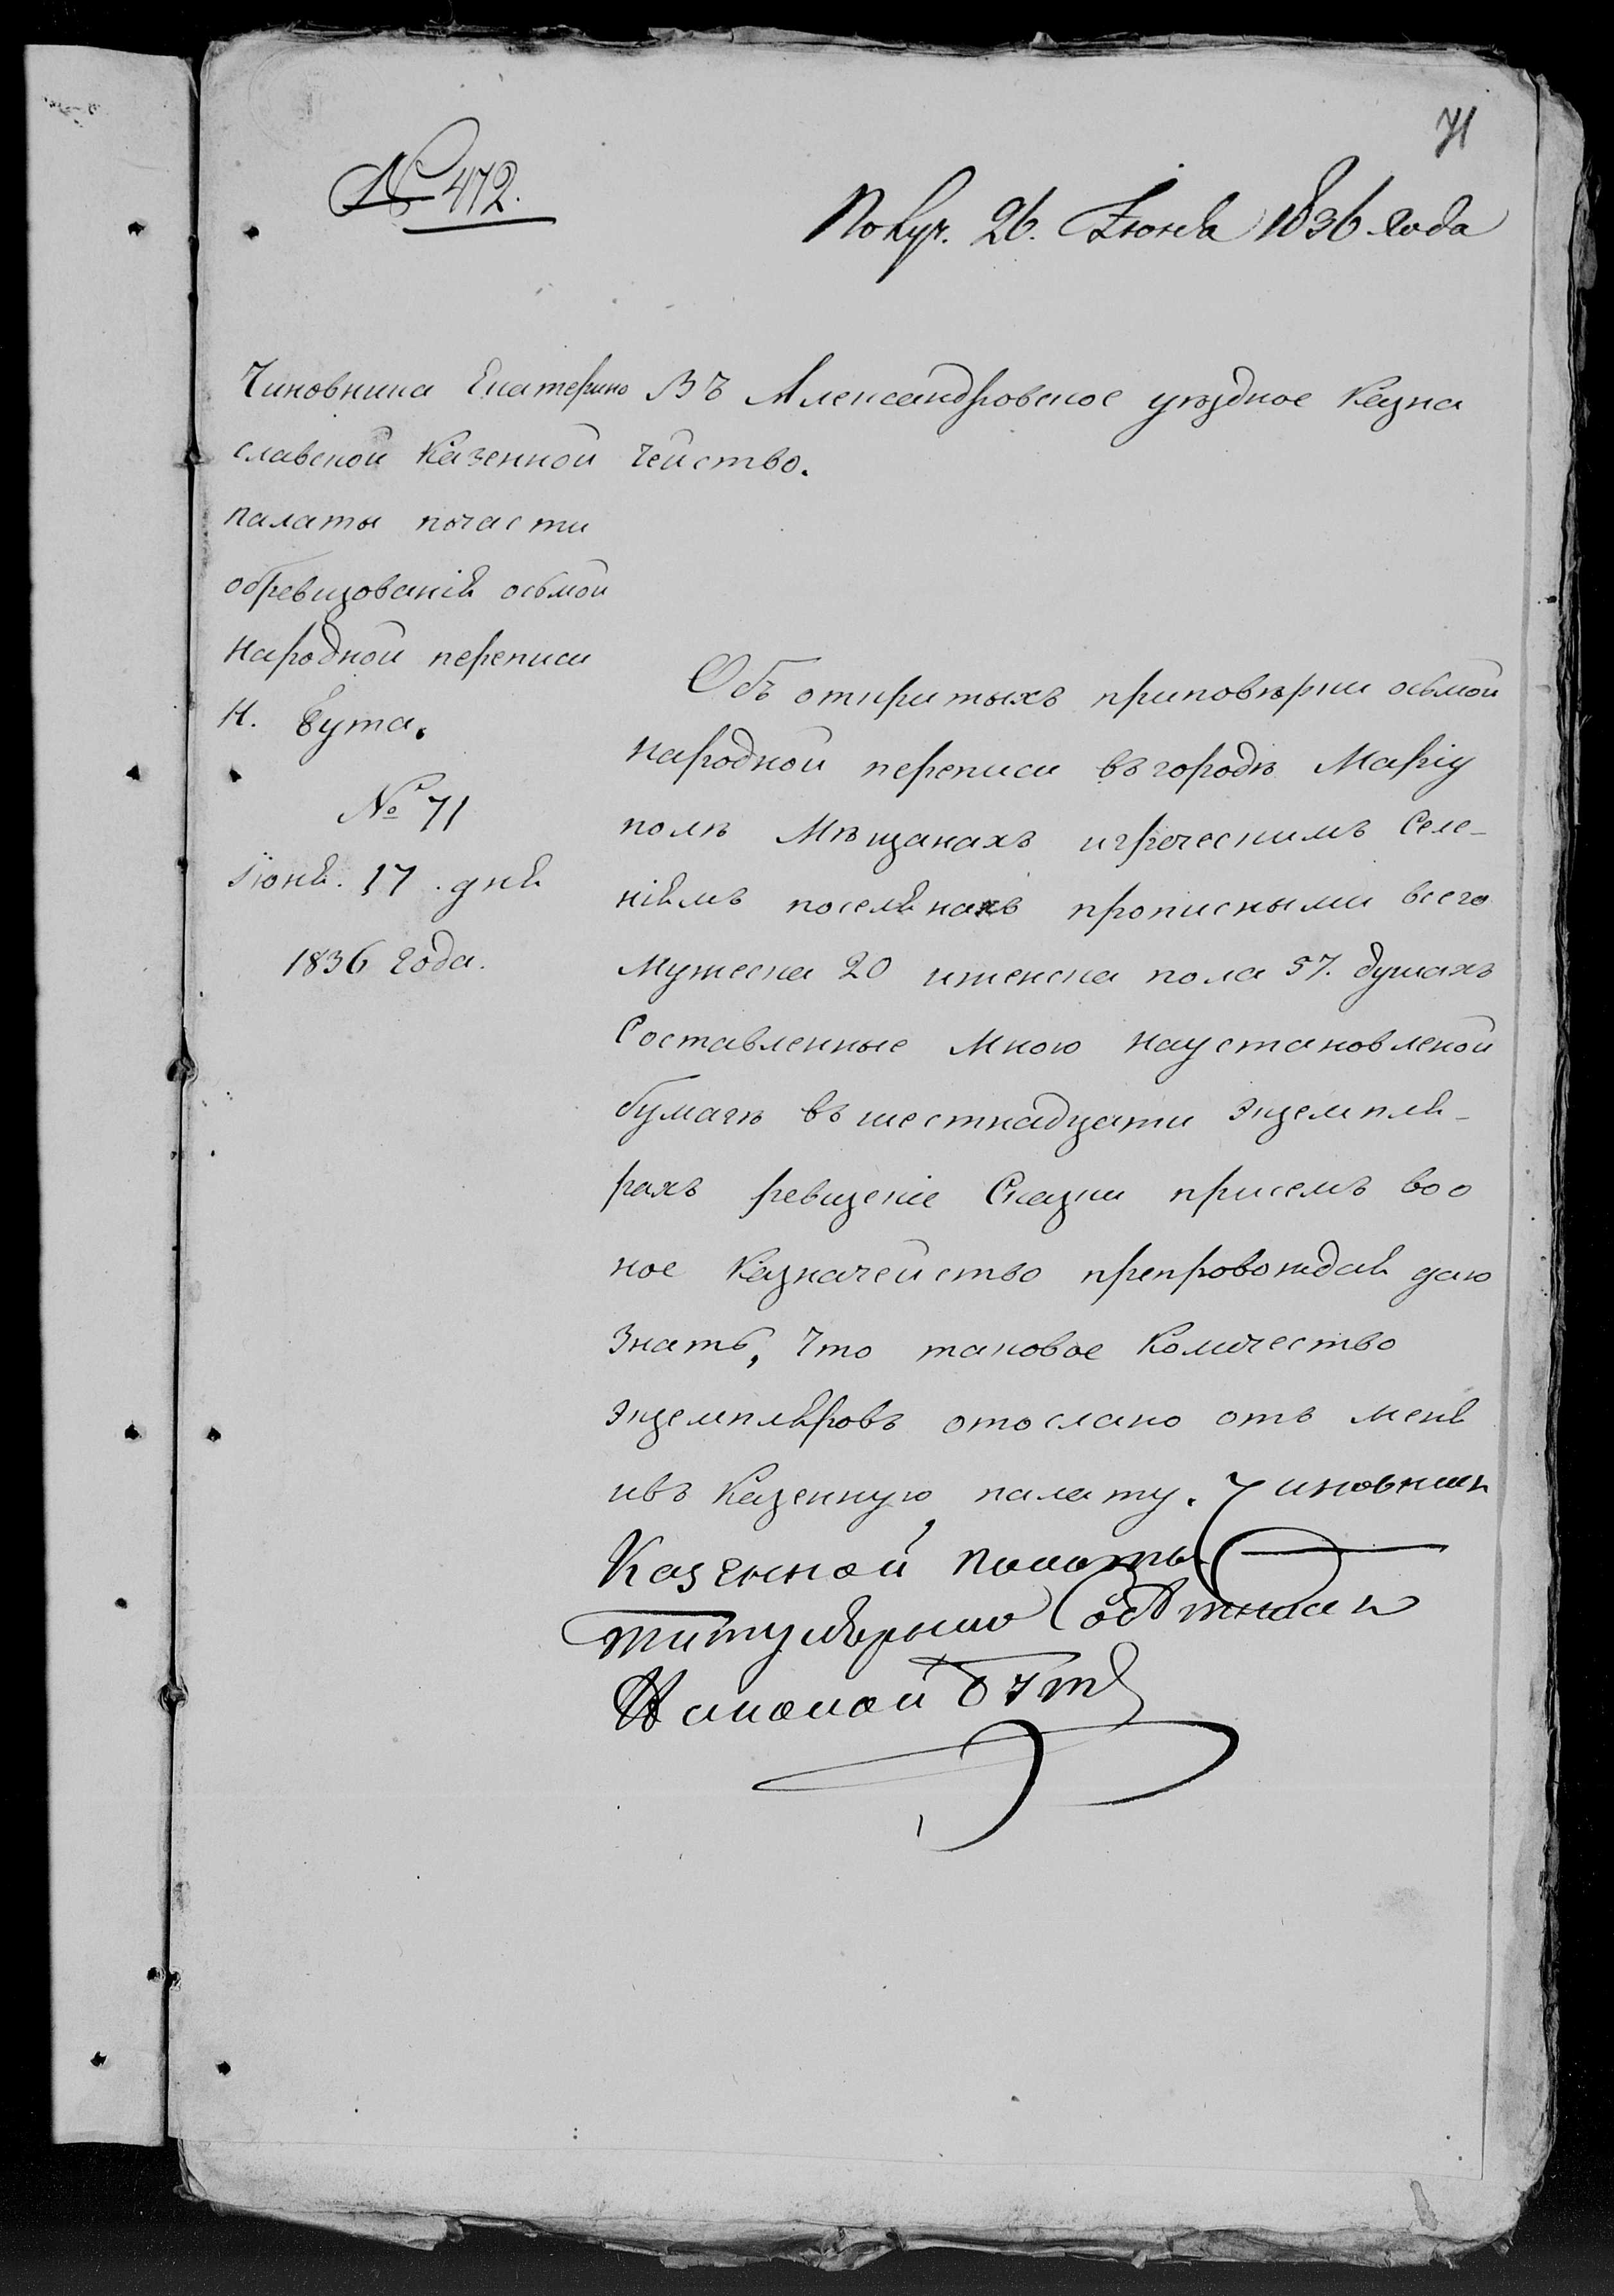 71
№ 472.
Получ. 26. Іюня 1836 года
Чиновника Екатерино
славской Казенной
палаты почасти
обревизованія осьмой
народной переписи
Н. Бута.
№ 71
Іюня. 17. дня
1836 года.
Въ Александровское уѣздное Казна
чейство.
Объ откритыхъ приповѣрки осьмой
народной переписи въ городѣ Маріу
полѣ Мѣщанахъ игреческимъ Селе-
ніямъ поселянахъ прописными всего
Мужеска 20 иженска пола 57. душахъ
Составленные мною наустановленой
бумагѣ въ шестнадцати Экземпля-
рахъ ревизскіе Сказки присемъ воо
ное Казначейство препровождая даю
Знать, Что таковое Количество
экземпляровъ отослано отъ меня
ивъ Казенную палату. Чиновникъ
Казенной Палаты
Титулярный Совѣтникъ
Николай Бутъ